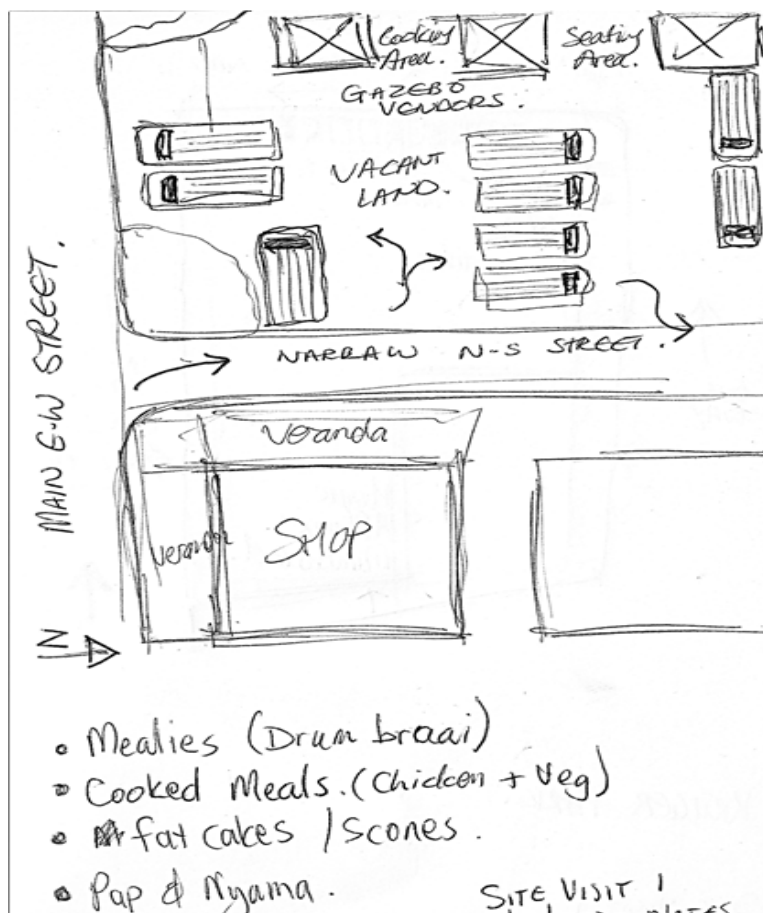 Cooking
Area.
Seating
Area.
GAZEBO
VENDORS.
VACANT
LAND.
MAIN E-W STREET.
NARRAW N-S STREET.
Veranda
Veranda
SHOP
N
• Mealies (Drum braai)
• Cooked Meals. (Chicken + Veg)
• fat cakes / Scones.
• Pap & Nyama.
SITE VISIT 1